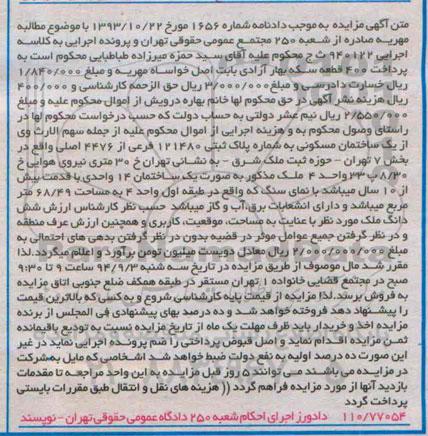 متن آگهی مزایده به موجب دادنامه شماره 1656 مورخ 1393/10/22 با موضوع مطالبه
مهریه صادره از شعبه 250 مجتمع عمومی حقوقی تهران و پرونده اجرایی به کلاسه
اجرایی 940122 ث ح محکوم علیه آقای سید حمزه میرزاده طباطبایی محکوم است به
پرداخت 400 قطعه سکه بهار آزادی بابت اصل خواسته مهریه و مبلغ 1/840/000
ریال خسارت دادرسی و مبلغ 3/000/000 ریال حق الزحمه کارشناسی و 400/000
ریال هزینه نشر آگهی در حق محکوم لها خانم بهاره درویش از اموال محکوم علیه و مبلغ
2/550/000 ریال نیم عشر دولتی به حساب دولت که حسب درخواست محکوم لها در
راستای وصول محکوم به و هزینه اجرایی از اموال محکوم علیه از جمله سهم الارث وی
از یک ساختمان مسکونی به شماره پلاک ثبتی 121480 فرعی از 4476 اصلی واقع در
بخش 7 تهران - حوزه ثبت ملک شرق - به نشانی تهران خ 30 متری نیروی هوایی خ
8/30 پ 33 واحد 4 ملک مذکور به صورت یک ساختمان 14 واحدی با قدمت بیش
از 10 سال میباشد با نمای سنگ که واقع در طبقه اول واحد 4 به مساحت 68/49 متر
مربع میباشد و دارای انشعابات برق، آب و گاز میباشد حسب نظر کارشناس ارزش شش
دانگ ملک مورد نظر با عنایت به مساحت، موقعیت، کاربری و همچنین ارزش عرف منطقه
و در نظر گرفتن جمیع عوامل موثر در قضیه بدون در نظر گرفتن بدهی های احتمالی به
مبلغ 2/000/000/000 ریال معادل دویست میلیون تومن برآورد و اعلام میگردد. لذا
مقرر شد مال موصوف از طریق مزایده در تاریخ سه شنبه 94/9/3 ساعت 9 تا 9:30
صبح در مجتمع قضایی خانواده 1 تهران مستقر در طبقه همکف ضلع جنوبی اتاق مزایده
به فروش برسد. لذا مزایده از قیمت پایه کارشناسی شروع و به کسی که بالاترین قیمت
را پیشنهاد دهد فروخته خواهد شد و ده درصد بهای پیشنهادی فی المجلس از برنده
مزایده اخذ و خریدار باید ظرف مهلت یک ماه از تاریخ مزایده نسبت به تودیع باقیمانده
ثمن مزایده اقدام نماید و اصل قبوض پرداختی را ضم پرونده اجرایی نماید در غیر
این صورت ده درصد اولیه به نفع دولت ضبط خواهد شد اشخاصی که مایل به شرکت
در مزایده می باشند می توانند 5 روز قبل مزایده به این واحد مراجعه تا مقدمات
بازدید آنها از مورد مزایده فراهم گردد (( هزینه های نقل و انتقال طبق مقررات بایستی
پرداخت گردد
110/77054 دادورز اجرای احکام شعبه 250 دادگاه عمومی حقوقی تهران - نویسند